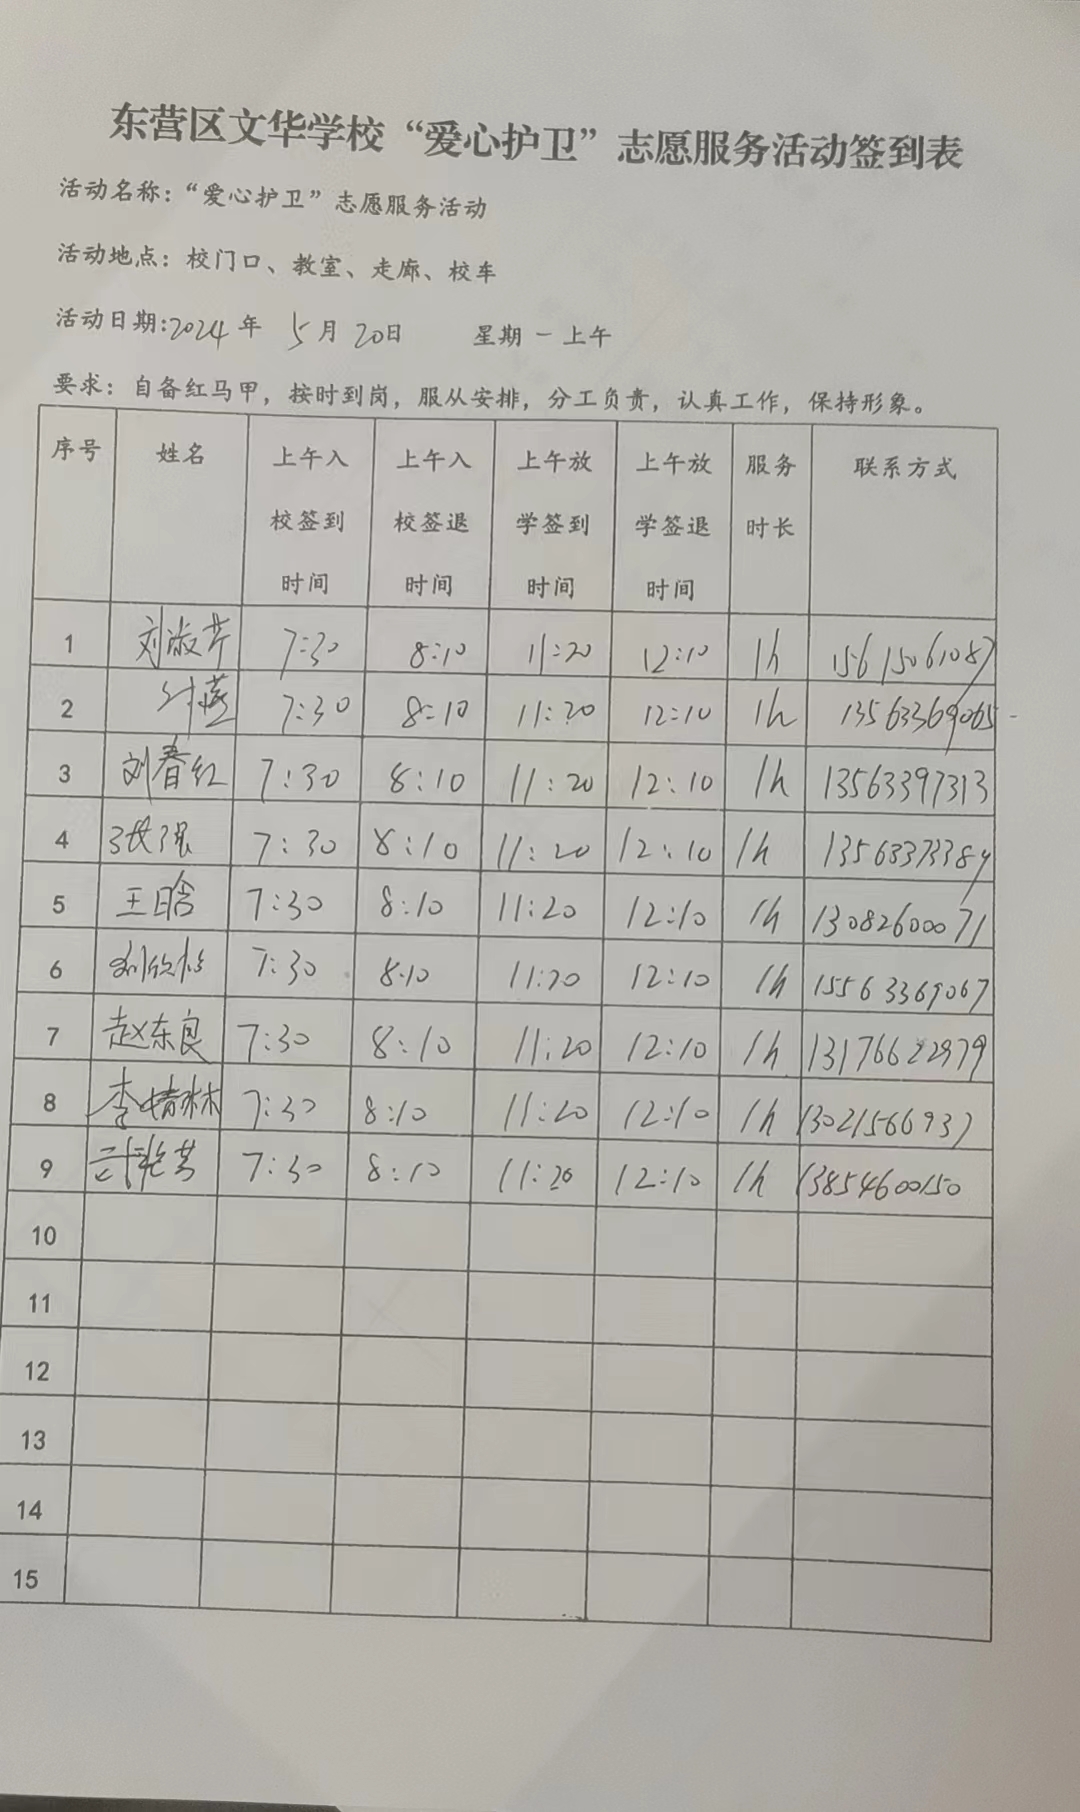 东营区文华学校“爱心护卫”志愿服务活动签到表
活动名称：“爱心护卫”志愿服务活动
活动地点：校门口、教室、走廊、校车
活动日期:2024年 5月 20日 星期一上午
要求：自备红马甲，按时到岗，服从安排，分工负责，认真工作，保持形象。
序号 姓名 上午入校签到时间 上午入校签退时间 上午放学签到时间 上午放学签退时间 服务时长 联系方式
1 刘淑芹 7:30 8:10 11:20 12:10 1h 15615061087
2 7:30 8:10 11:20 12:10 1h 13563369065
3 刘春红 7:30 8:10 11:20 12:10 1h 13563397313
4 张强 7:30 8:10 11:20 12:10 1h 13563373384
5 王晗 7:30 8:10 11:20 12:10 1h 13082600071
6 7:30 8:10 11:20 12:10 1h 15563369067
7 赵东良 7:30 8:10 11:20 12:10 1h 13176622979
8 李婧琳 7:30 8:10 11:20 12:10 1h 13021566937
9 7:30 8:10 11:20 12:10 1h 13854600150
10
11
12
13
14
15